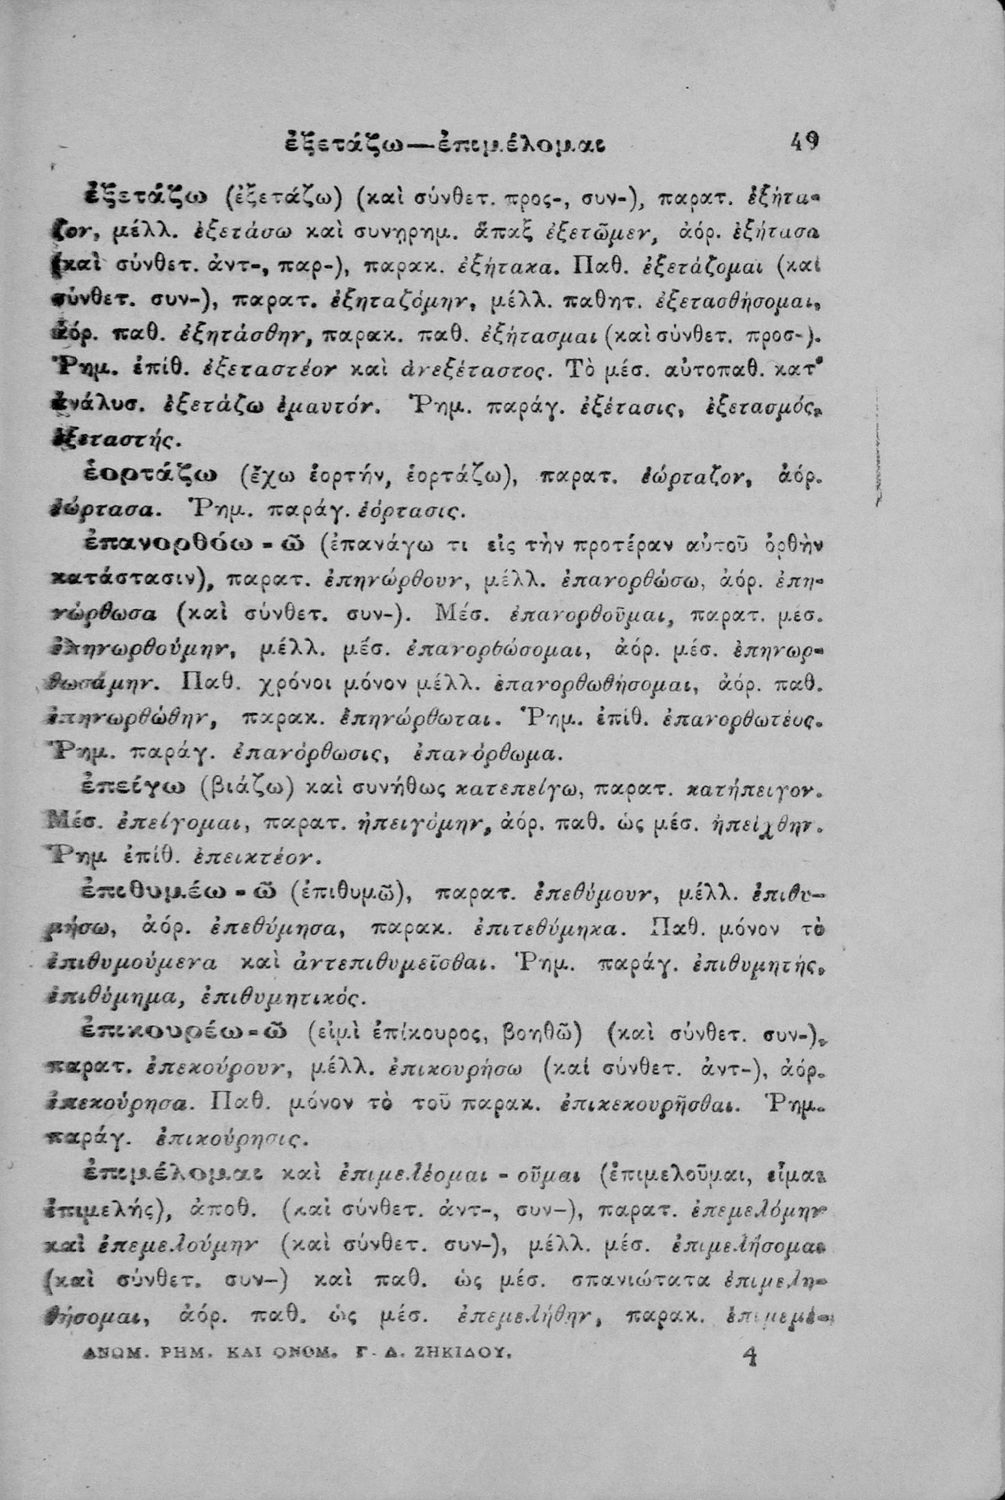 ἐξετάζω—ἐπιμέλομαι 49
ἐξετάζω (ἐξετάζω) (καὶ σύνθετ. προς-, συν-), παρατ. ἐξήτα-
ζον, μέλλ. ἐξετάσω καὶ συνῃρημ. ἅπαξ ἐξετῶμεν, ἀόρ. ἐξήτασα
(καὶ σύνθετ. ἀντ-, παρ-), παρακ. ἐξήτακα. Παθ. ἐξετάζομαι (καὶ
σύνθετ. συν-), παρατ. ἐξηταζόμην, μέλλ. παθητ. ἐξετασθήσομαι,
ἀόρ. παθ. ἐξητάσθην, παρακ. παθ. ἐξήτασμαι (καὶ σύνθετ. προσ-).
Ῥημ. ἐπίθ. ἐξεταστέον καὶ ἀνεξέταστος. Τὸ μέσ. αὐτοπαθ. κατ'
ἀνάλυσ. ἐξετάζω ἐμαυτόν. Ῥημ. παράγ. ἐξέτασις, ἐξετασμός,
ἐξεταστής.
ἑορτάζω (ἔχω ἑορτήν, ἑορτάζω), παρατ. ἑώρταζον, ἀόρ.
ἑώρτασα. Ῥημ. παράγ. ἑόρτασις.
ἐπανορθόω - ῶ (ἐπανάγω τι εἰς τὴν προτέραν αὐτοῦ ὀρθὴν
κατάστασιν), παρατ. ἐπηνώρθουν, μέλλ. ἐπανορθώσω, ἀόρ. ἐπη-
νώρθωσα (καὶ σύνθετ. συν-). Μέσ. ἐπανορθοῦμαι, παρατ. μέσ.
ἐπηνωρθούμην, μέλλ. μέσ. ἐπανορθώσομαι, ἀόρ. μέσ. ἐπηνωρ-
θωσάμην. Παθ. χρόνοι μόνον μέλλ. ἐπανορθωθήσομαι, ἀόρ. παθ.
ἐπηνωρθώθην, παρακ. ἐπηνώρθωται. Ῥημ. ἐπίθ. ἐπανορθωτέος.
Ῥημ. παράγ. ἐπανόρθωσις, ἐπανόρθωμα.
ἐπείγω (βιάζω) καὶ συνήθως κατεπείγω, παρατ. κατήπειγον.
Μέσ. ἐπείγομαι, παρατ. ἠπειγόμην, ἀόρ. παθ. ὡς μέσ. ἠπείχθην.
Ῥημ ἐπίθ. ἐπεικτέον.
ἐπιθυμέω - ῶ (ἐπιθυμῶ), παρατ. ἐπεθύμουν, μέλλ. ἐπιθυ-
μήσω, ἀόρ. ἐπεθύμησα, παρακ. ἐπιτεθύμηκα. Παθ. μόνον τὸ
ἐπιθυμούμενα καὶ ἀντεπιθυμεῖσθαι. Ῥημ. παράγ. ἐπιθυμητής,
ἐπιθύμημα, ἐπιθυμητικός.
ἐπικουρέω-ῶ (εἰμὶ ἐπίκουρος, βοηθῶ) (καὶ σύνθετ. συν-),
παρατ. ἐπεκούρουν, μέλλ. ἐπικουρήσω (καί σύνθετ. ἀντ-), ἀόρ.
ἐπεκούρησα. Παθ. μόνον τὸ τοῦ παρακ. ἐπικεκουρῆσθαι. Ῥημ.
παράγ. ἐπικούρησις.
ἐπιμέλομαι καὶ ἐπιμελέομαι - οῦμαι (ἐπιμελοῦμαι, εἶμαι
ἐπιμελής), ἀποθ. (καὶ σύνθετ. ἀντ-, συν-), παρατ. ἐπεμελόμην
καὶ ἐπεμελούμην (καὶ σύνθετ. συν-), μέλλ. μέσ. ἐπιμελήσομαι
(καὶ σύνθετ. συν-) καὶ παθ. ὡς μέσ. σπανιώτατα ἐπιμελη-
θήσομαι, ἀόρ. παθ. ὡς μέσ. ἐπεμελήθην, παρακ. ἐπιμεμέ-
ΑΝΩΜ. ΡΗΜ. ΚΑΙ ΟΝΟΜ. Γ. Δ. ΖΗΚΙΔΟΥ. 4